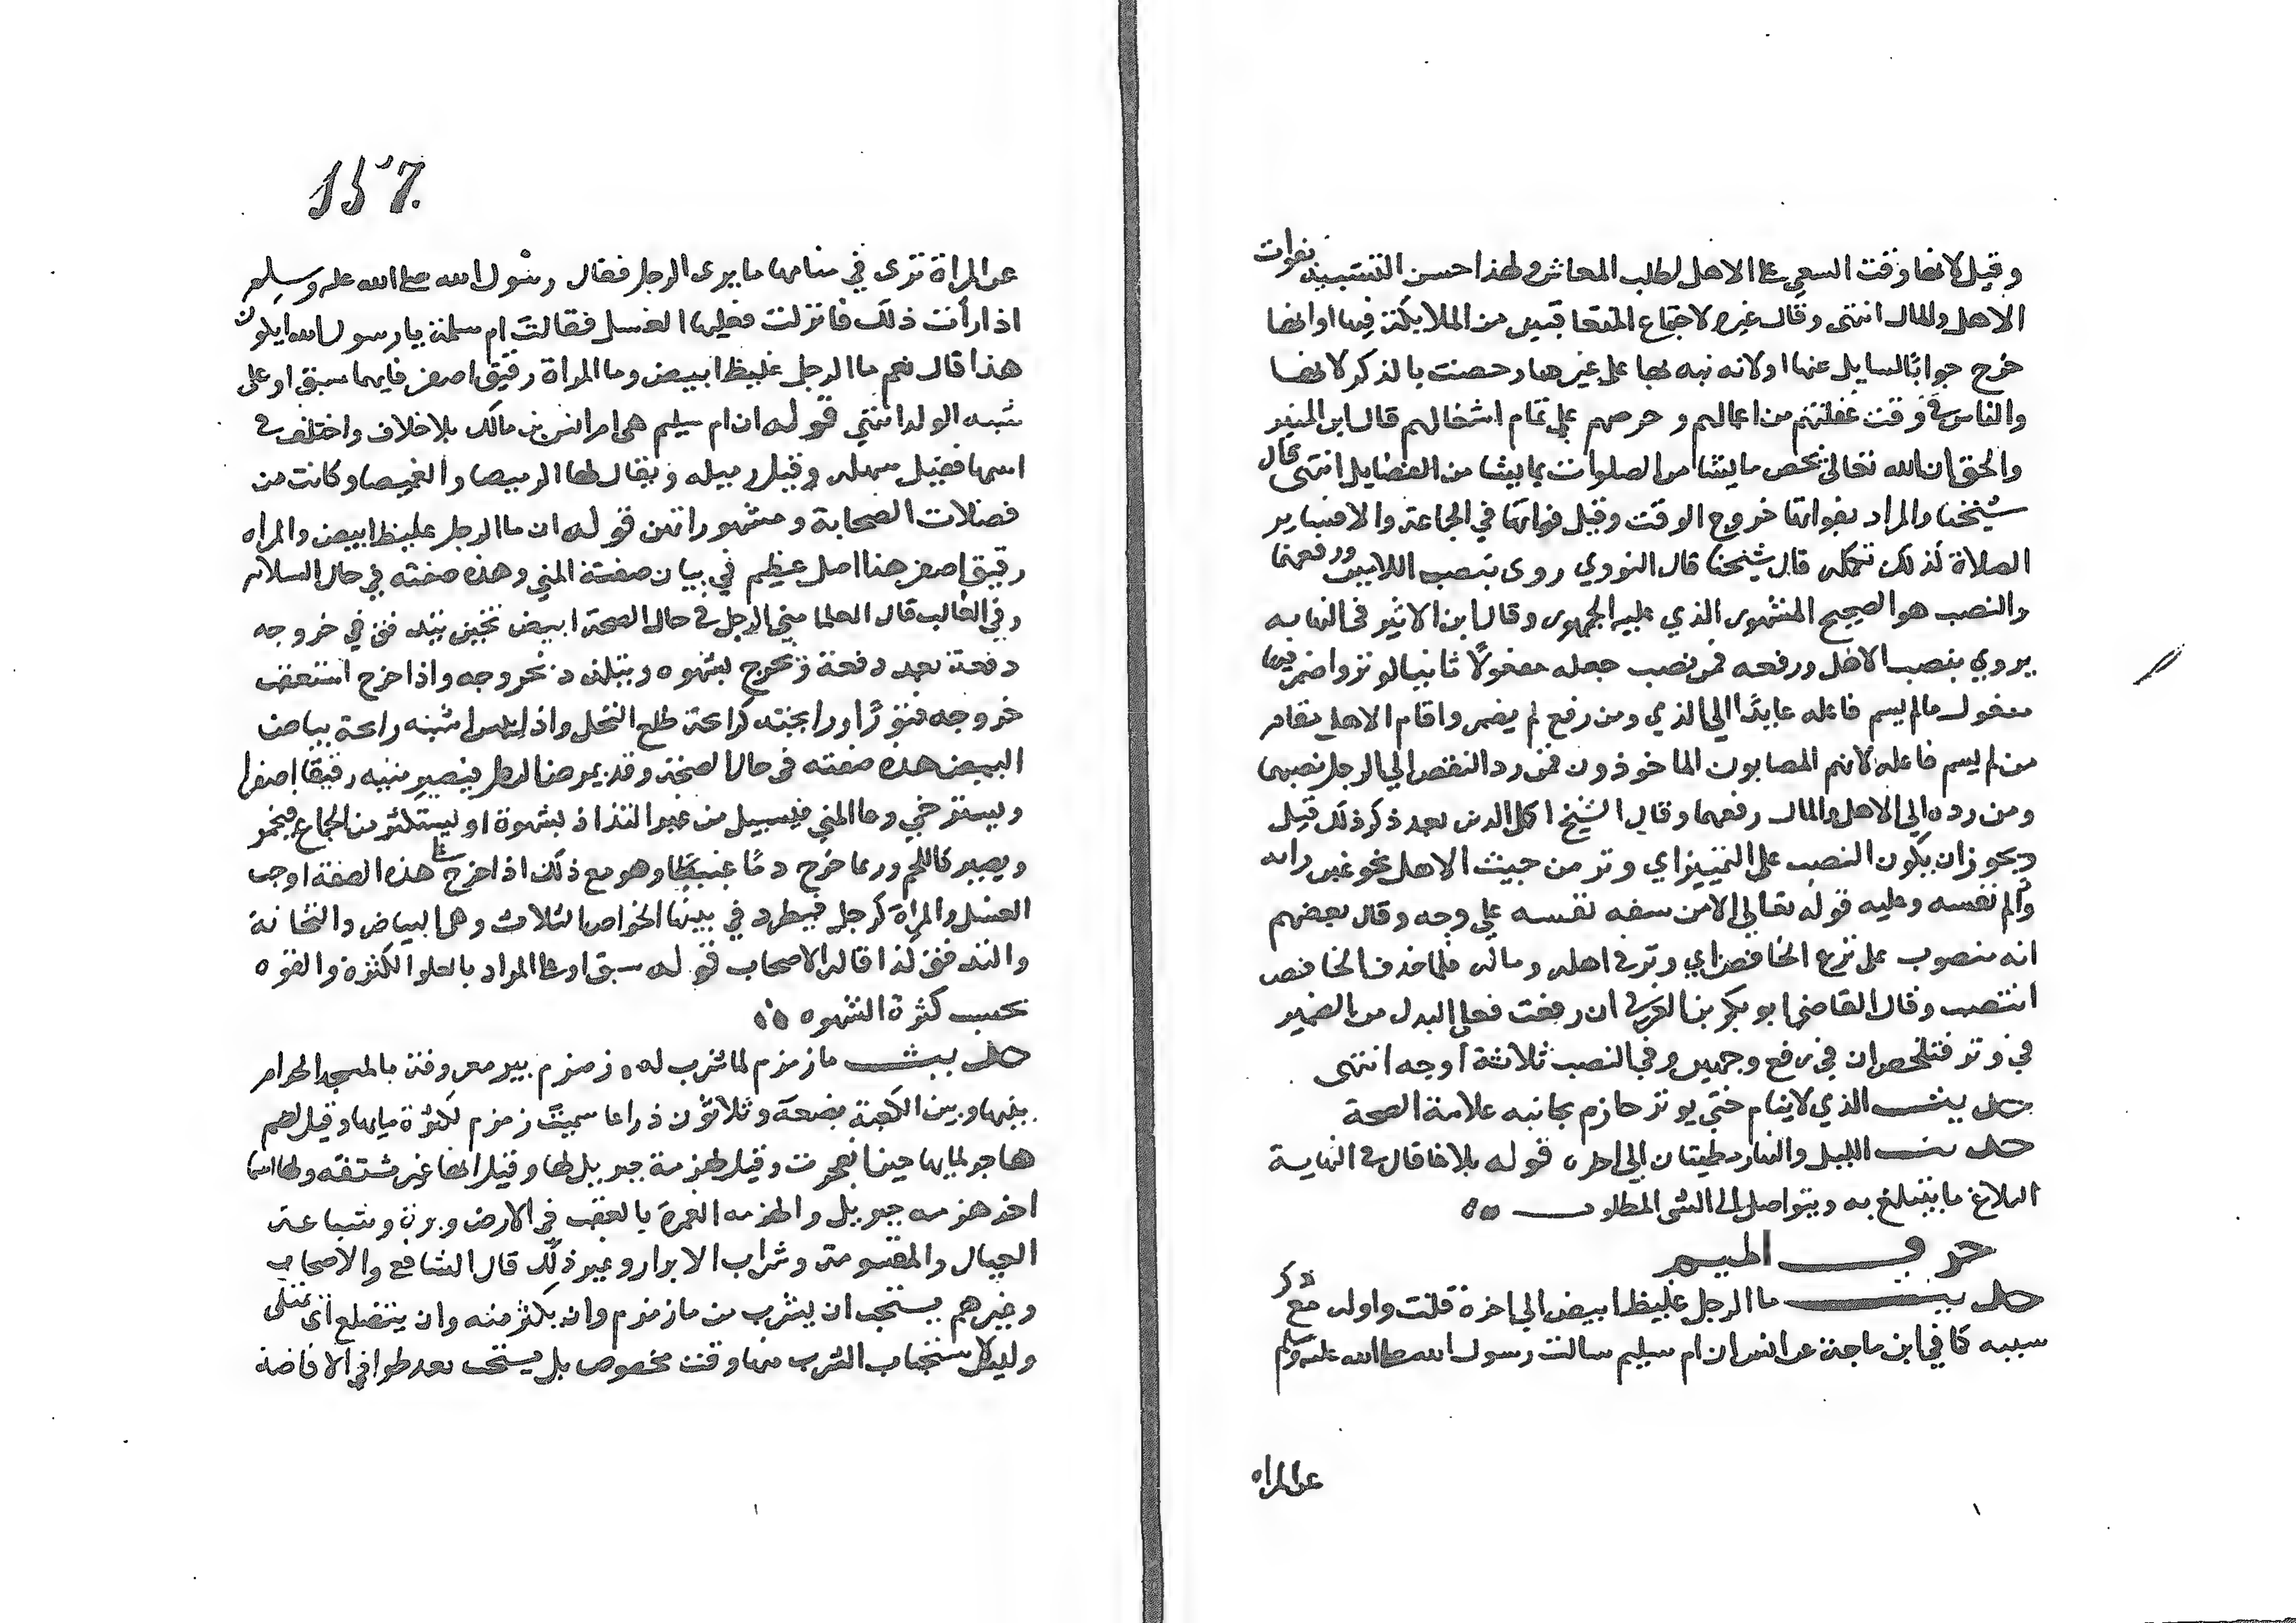 وقيل لانها وقت السعي على الاهل لطلب المعاش ولهذا حسن التشبيه بفوات
الاهل والمال انتهى وقال غيره لاجتماع المتعاقبين من الملايكة فيها او انها
خرج جوابا لسايل عنها او لانه نبه بها على غيرها وخصت بالذكر لانها
والناس في وقت غفلتهم من اعمالهم وحرصهم على تمام اشغالهم قال ابن المنير
والحق ان الله تعالى يخص ما يشا من الصلوات بما يشا من الفضايل انتهى قال
شيخنا والمراد بفواتها خروج الوقت وقيل فواتها في الجماعة
الصلاة لذلك قال شيخنا قال النووي روى بنصب اللامين ورفعهما
والنصب هو الصحيح المشهور الذي عليه الجمهور وقال ابن الاثير في النهايه
يروي بنصب الاهل ورفعه فمن نصب جعله مفعولا ثانيا لوتر واضمر فيها
مفعول ما لم يسم فاعله عايدا الي الذي ومن رفع لم يضمر واقام الاهل مقام
من لم يسم فاعله لانهم المصابون الماخوذون فمن رد النقص الي الرجل نصبهما
ومن رده الى الاهل والمال رفعهما وقال الشيخ اكمل الدين بعد ذكر ذلك قيل
ويجوز ان يكون النصب على التمييز اي وتر من حيث الاهل نحو غبن رايه
والم نفسه وعليه قوله تعالى الا من سفه نفسه على وجه وقال بعضهم
انه منصوب على نزع الخافض اي وتر في اهله وماله فلما حذف الخافض
انتصب وقال القاضي ابو بكر بن العربي ان رفعت فعلى البدل من الضمير
في وتر فتلخص ان في رفع وجهين وفي النصب ثلاثة اوجه انتهى
حديث الذي لا ينام حتى يوتر حازم بجانبه علامة الصحة
حديث الليل والنهار مطيتان الي اخره قوله بلاغا قال في النهاية
البلاغ ما يتبلغ به ويتوصل الى الشي المطلوب
حرف الميم
حديث ما الرجل غليظ ابيض الي اخره قلت واوله مع ذكر
سببه كما في ابن ماجة عن انس ان ام سليم سالت رسول الله صلى الله عليه وسلم
عن المراه
157
عن المراة ترى في منامها ما يرى الرجل فقال رسول الله صلى الله عليه وسلم
اذا رأت ذلك فانزلت فعليها الغسل فقالت ام سلمة يا رسول الله ايكون
هذا قال نعم ما الرجل غليظ ابيض وما المراة رقيق اصفر فايهما سبق او على
شبه الولد انتهى قوله ان ام سليم هي ام انس بن مالك بلا خلاف واختلف في
اسمها فقيل سهله وقيل رميله ويقال لها الرميصا والغميصا وكانت من
فضلات الصحابة ومشهوراتهن قوله ان ما الرجل غليظ ابيض والمراه
رقيق اصفر هذا اصل عظيم في بيان صفة المني وهذه صفته في حال السلامه
وفي الغالب قال العلما مني الرجل في حال الصحة ابيض ثخين يتدفق في خروجه
دفعة بعد دفعة ويخرج بشهوه ويتلذذ بخروجه واذا خرج استعقب
خروجه فتورا ورايحته كرايحة طلع النخل واذا يبس اشبه رايحة بياض
البيض هذه صفته في حال الصحة وقد يمرض الرجل فيصير منيه رقيقا اصفر ا
ويسترخي وعا المني فيسيل من غير التذاذ بشهوة او يستكثر من الجماع فيحمر
ويصير كا اللحم وربما خرج دما عبيطا وهو مع ذلك اذا خرج على هذه الصفة اوجب
الغسل والمراة كرجل فيطرد في بينها الخواص الثلاث وهي البياض والثخانة
والتدفق كذا قاله الاصحاب قوله سبق او على المراد بالعلو الكثرة والقوه
بحسب كثرة الشهوه
حديث ما زمزم لما شرب له زمزم بير معروفة بالمسجد الحرام
بينها وبين الكعبة بضعة وثلاثون ذراعا سميت زمزم لكثرة مايها وقيل لضم
هاجر لمايها حين انفجرت وقيل لهزمة جبريل لها وقيل انها غير مشتقه ولها اسما
اخر هزمه جبريل والهزمه الغمزة بالعقب في الارض وبرة وشباعة
العيال والمقسومة وشراب الابرار وغير ذلك قال الشافعي والاصحاب
وغيرهم يستحب ان يشرب من ما زمزم وان يكثر منه وان يتضلع اي يمتلى
وليس لاستحباب الشرب منها وقت مخصوص بل يستحب بعد طواف الافاضة